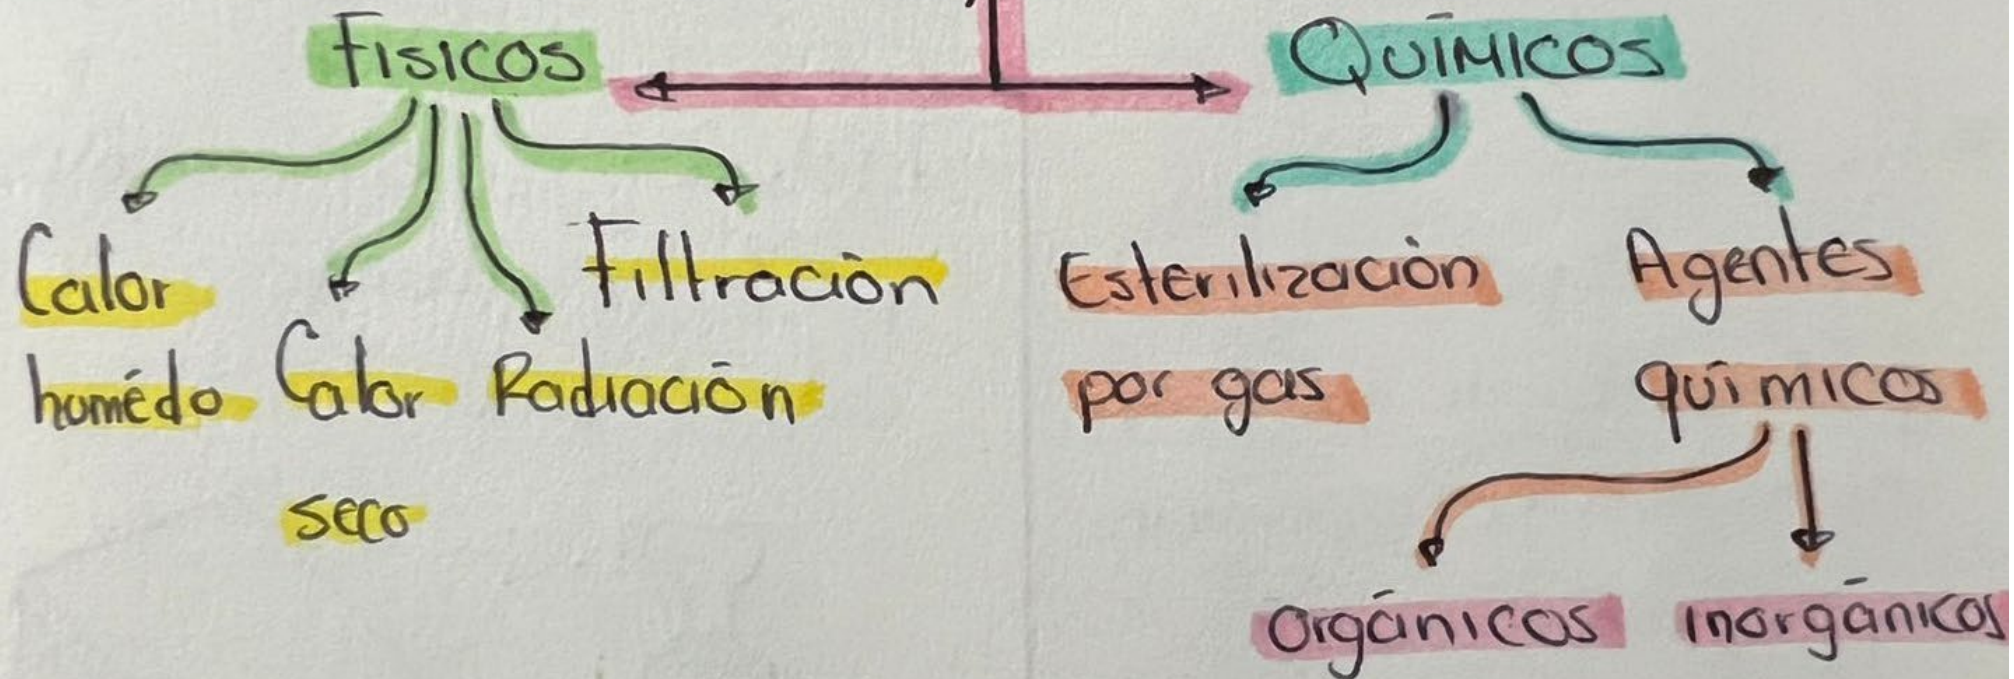 Físicos
Químicos
Calor
húmedo
Calor
seco
Radiación
Filtración
Esterilización
por gas
Agentes
químicos
Orgánicos
inorgánicos